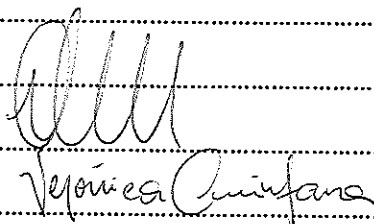 Verónica Quintana